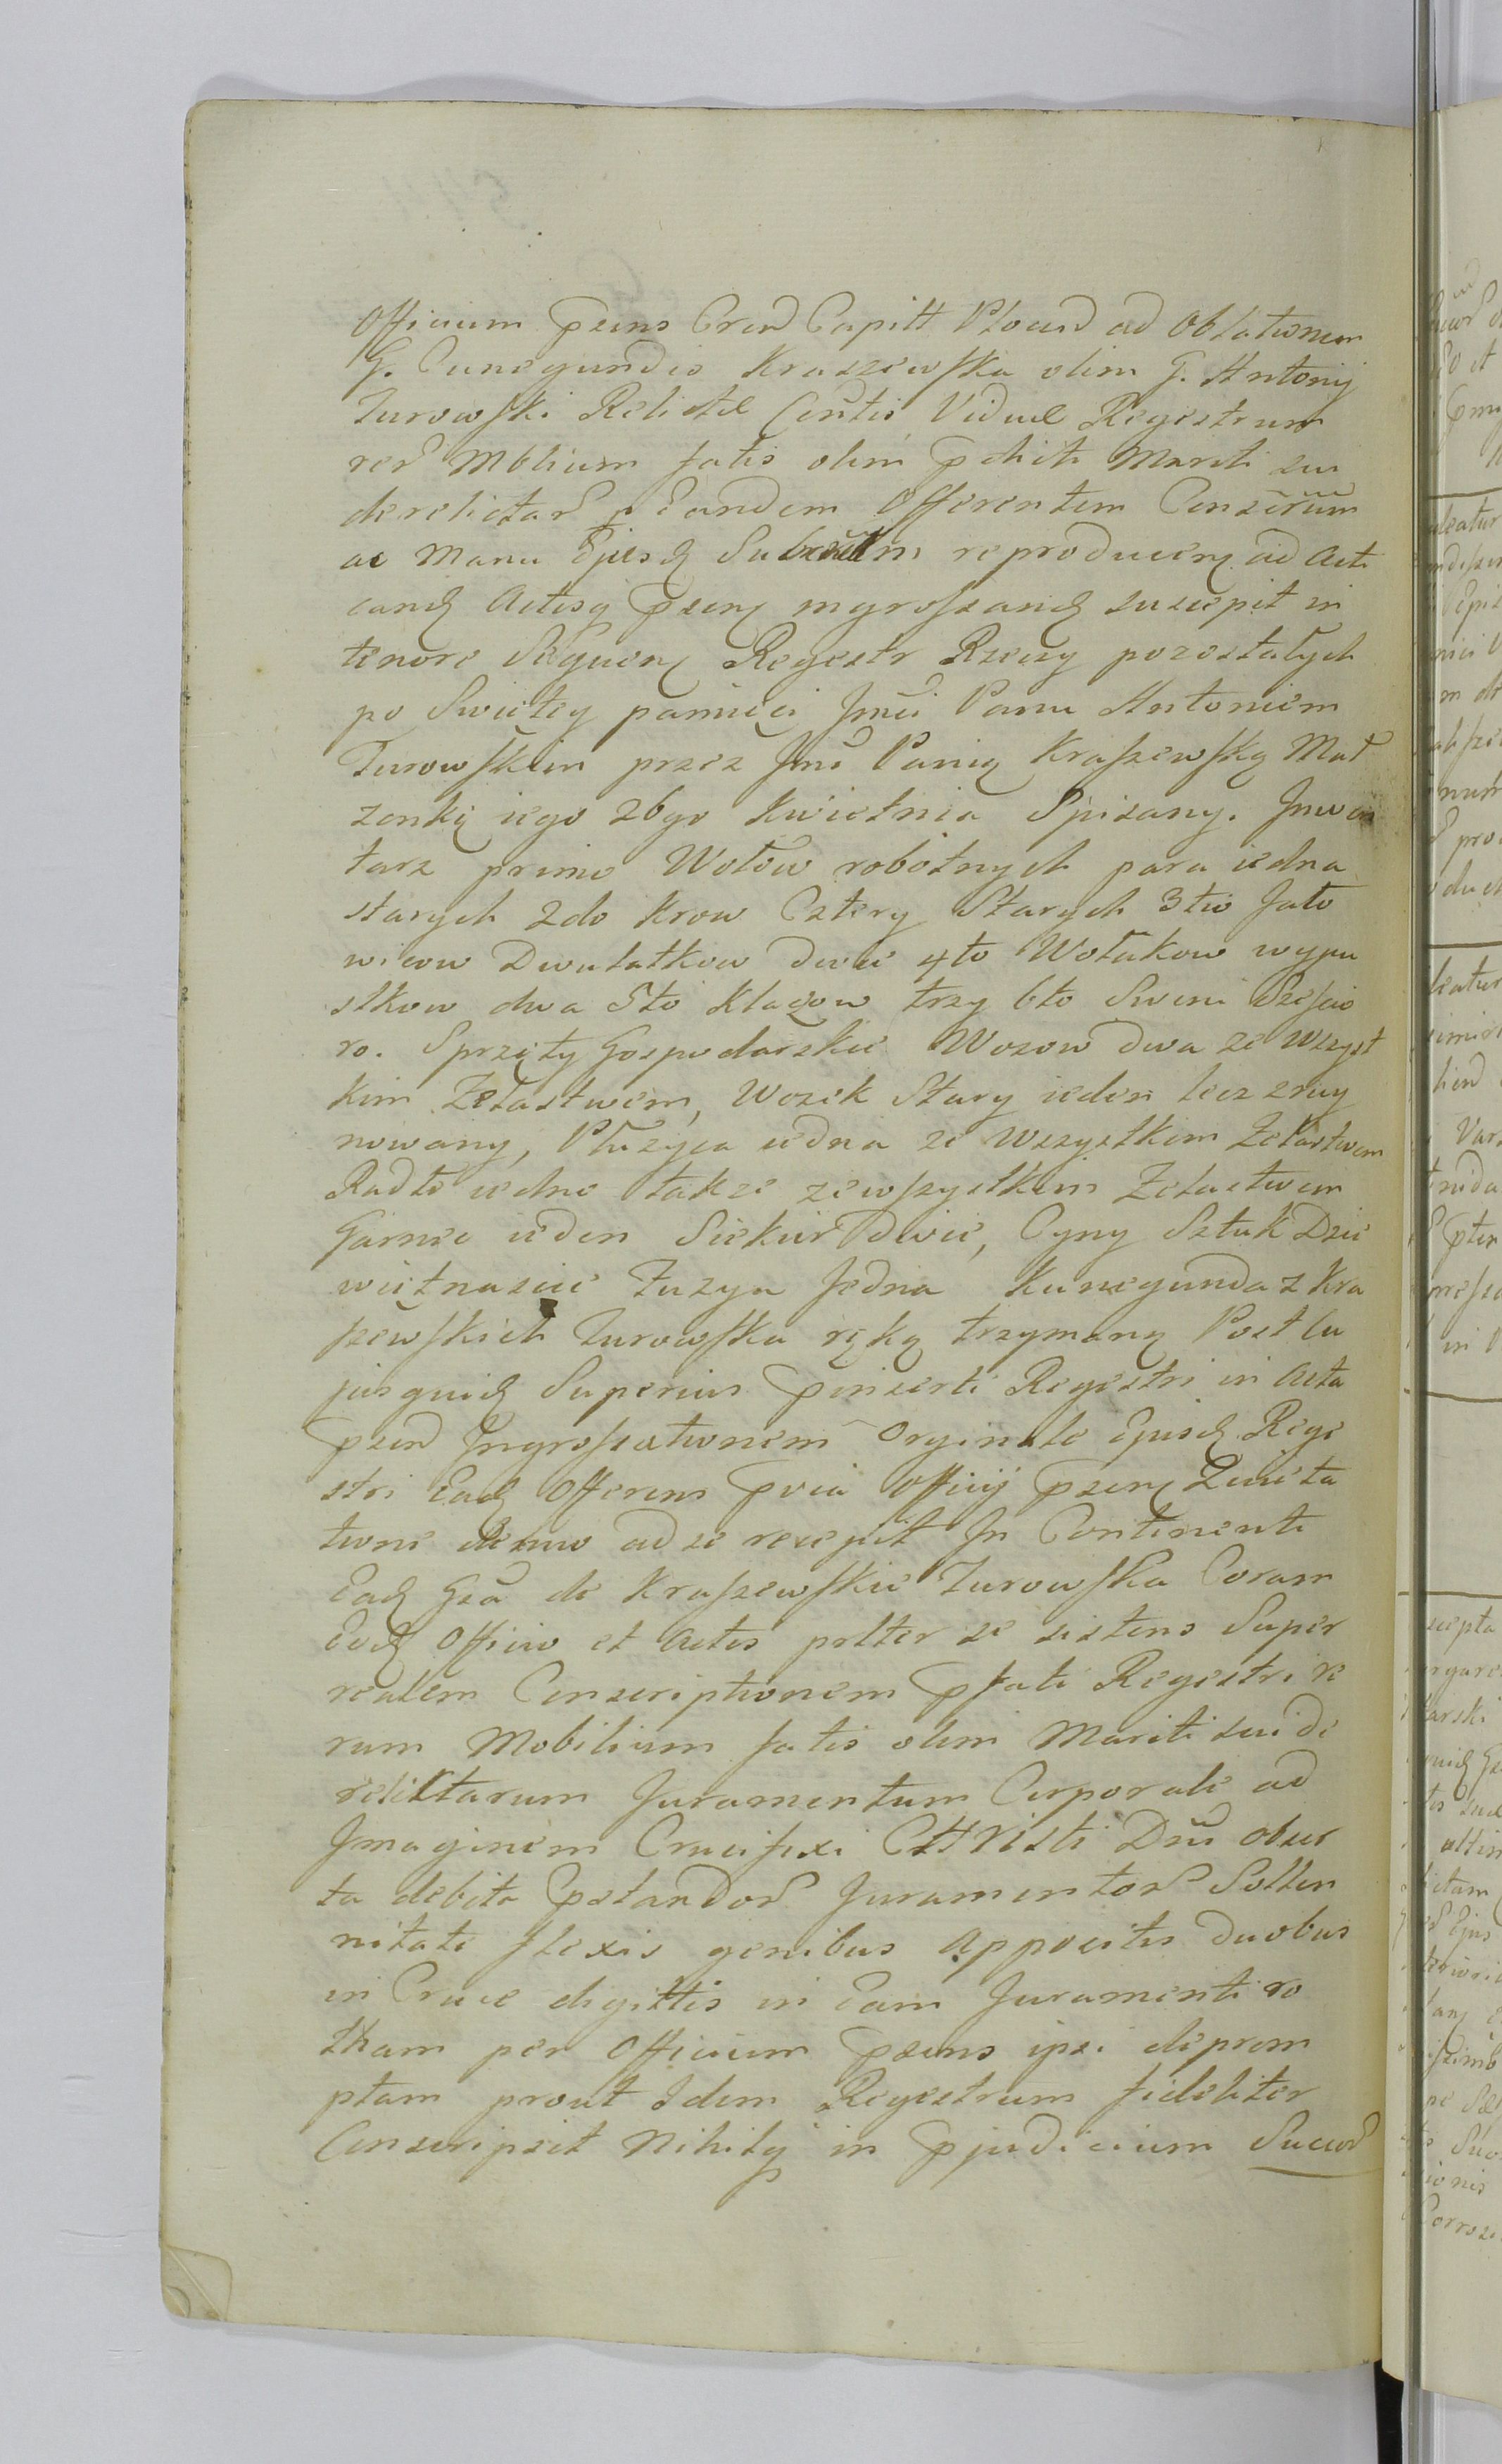 Officium Psens Crend Capitt Plocend ad Oblationem
G. Cunegundis Kraszewska olim G. Antonij
Turowski Relictæ Centis Viduæ Regestrum
rer Mblium fatis olim pdicti Mariti sui
derelictar p Eandem Offerentem Conscrum
ac Manu Ejusd Subscrtm reproducens ad Acti
cand Actisq psens ingrossand suscepit in
tenore Sequens Regestr Rzeczy pozostałych
po Swiętey pamięci Jmci Panu Antoniem
Turowskim przez Jmc Panią Kraszewską Mał
zonkę iego 26go Kwietnia Spisany. Inwen
tarz primo Wołow robotnych para iedna
starych 2do Krow Cztery Starych 3tio Jało
wicow Dwulatkow dwie 4to Wołakow wypu
stkow dwa 5to Klaczow trzy 6to Swini Sześcio
ro. Sprzęty Gospodarskie Wozow dwa ze wszyst
kim Zelastwem, Wozek Stary ieden lecz zruy
nowany, Płużyca iedna ze wszystkim Zelastwem
Radło iedno także zewszystkim Zelastwem
Garniec ieden Siekier dwie, Cyny Sztuk Dzie
więtnascie Fuzya Jedna Kunegunda z Kra
szewskich Turowska ręką trzymaną Post cu
jus quid Superius pinserti Regestri in Acta
psend Ingrossationem Orginale Ejusd Rege
stri Ead Offerens pvia Officij psens Quieta
tione denuo ad se recepit In Continenti
Ead Gsa de Kraszewskie Turowska Coram
Eod Officio et Actis psltter se sistens Super
realem Conscriptionem pfati Regestri re
rum Mobilium fatis olim Mariti sui de
relictarum Juramentum Corporale ad
Imaginem Crucifixi Christi Dni obser
ta debita pstandor Juramentor Sollen
nitate flexis genibus appositis duobus
in Cruce digittis in Eam Juramenti ro
tham per Officium psens ipsi deprom
ptam prout Idem Regestrum fideliter
Conscripsit Nihilq in pjudicium Succor